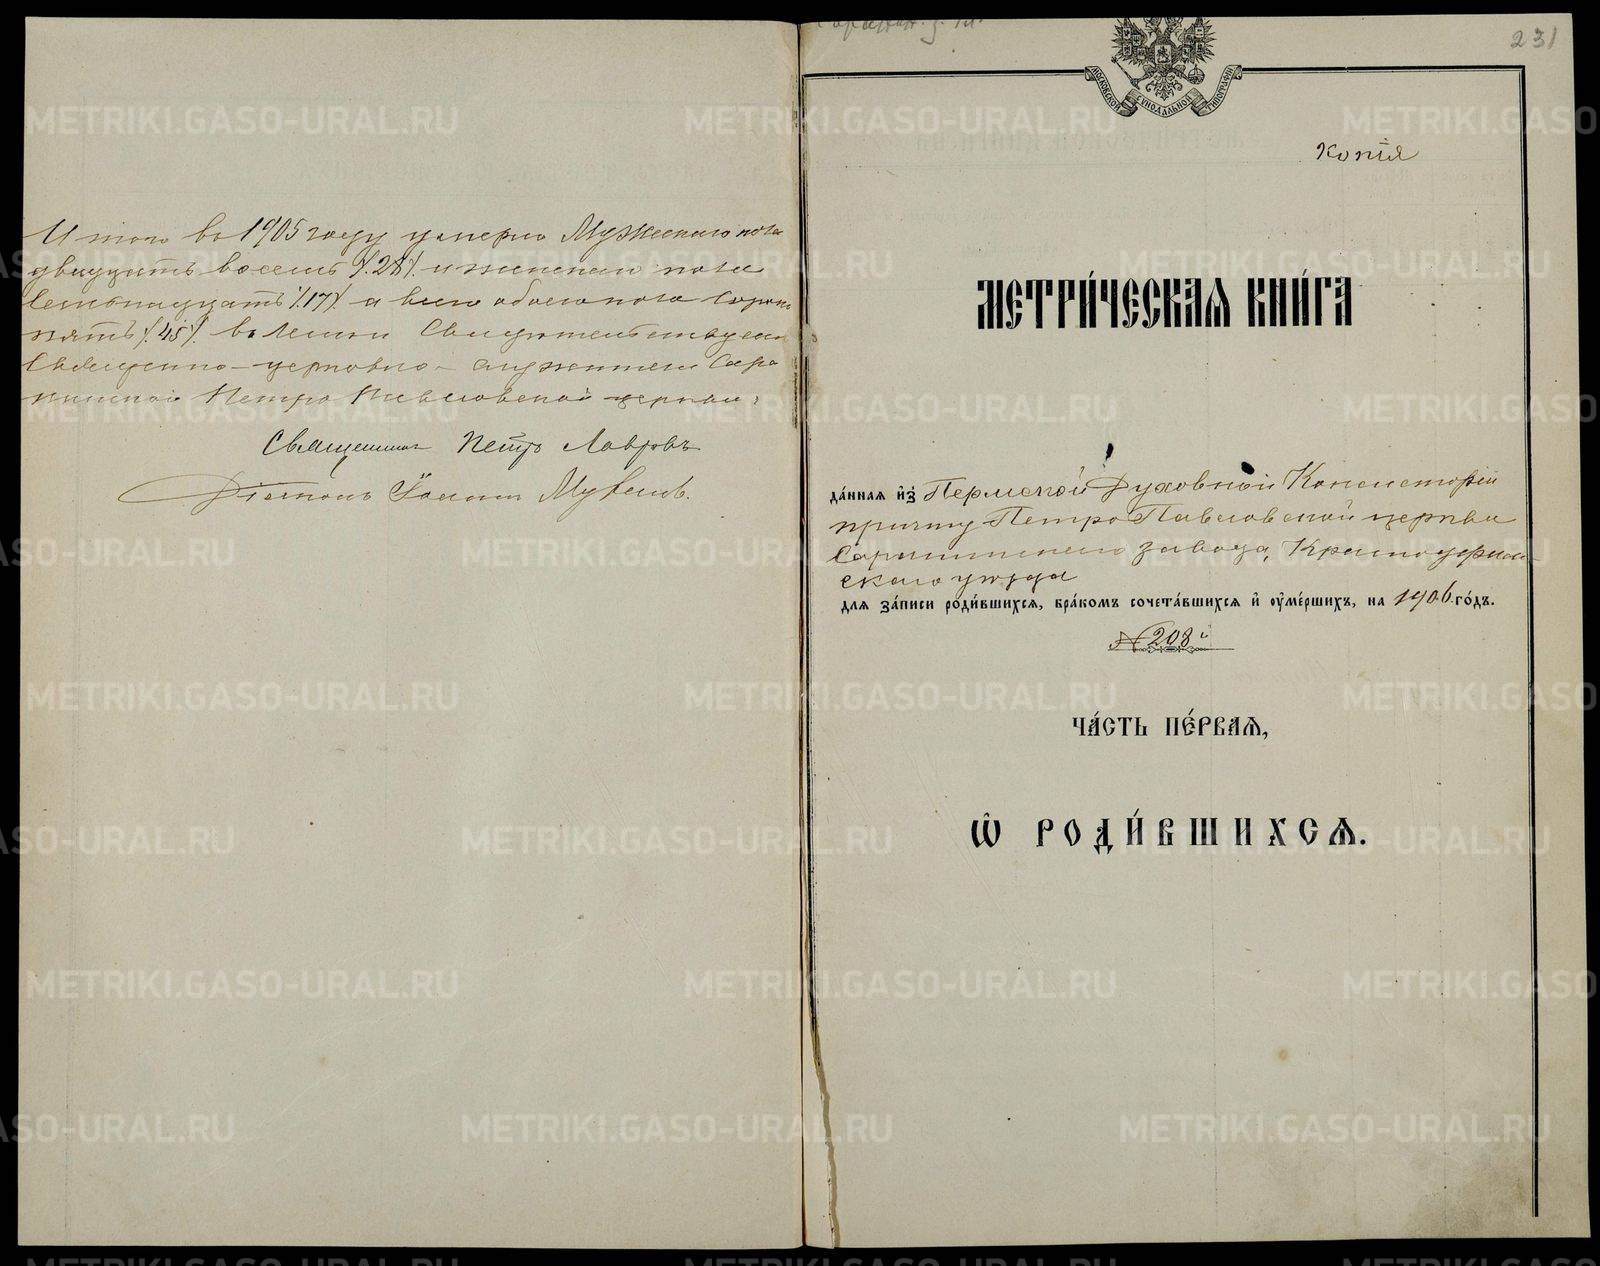 Итого во 1905 году умерло Мужескаго пола
двадцать восемь ٪28٪ и женскаго пола
Семьнадцать ٪17٪ а всего обоего пола Сорокъ
пять ٪45٪ в
Священно-церковно-служители Сара
нинской Петро Павловской церкви:
Священник Петръ Лавровъ
Діаконъ Іоаннъ
231
МОСКОВСКОЙ СѴНОДАЛЬНОЙ ТИПОГРАФІИ
Копія
МЕТРИ́ЧЕСКАѦ КНИ́ГА
да́нная и҆з̾ Пермской Духовной Консисторіи
причту Петро Павловской церкви
Саранинскаго завода, Красноуфим
скаго уѣзда
для за́писи роди́вшихсѧ, бра́комъ сочета́вшихсѧ и҆ ᲂу҆ме́ршихъ, на 1906 го́дъ.
№ 208й
ЧА́СТЬ ПЕ́РВАѦ,
Ѽ РОДИ́ВШИХСѦ.
METRIKI.GASO-URAL.RU